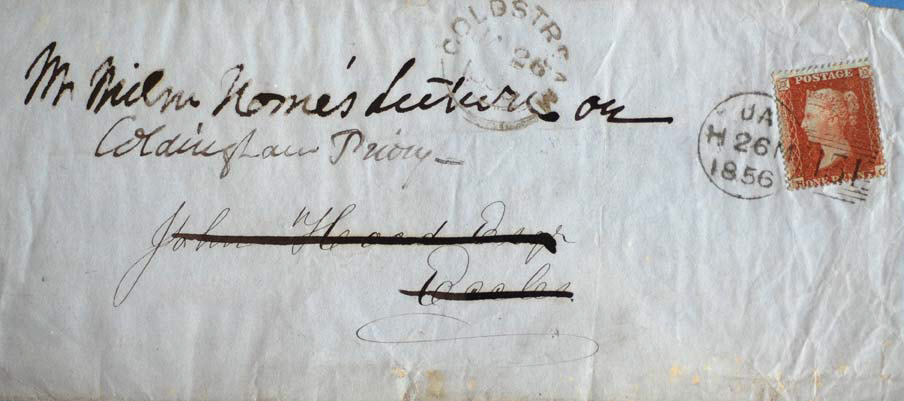 COLDSTR
26
Mr Milne Home's Lecture on
Coldingham Priory
POSTAGE
JA
H 26 M
1856
John Hood Esqr
Eccles